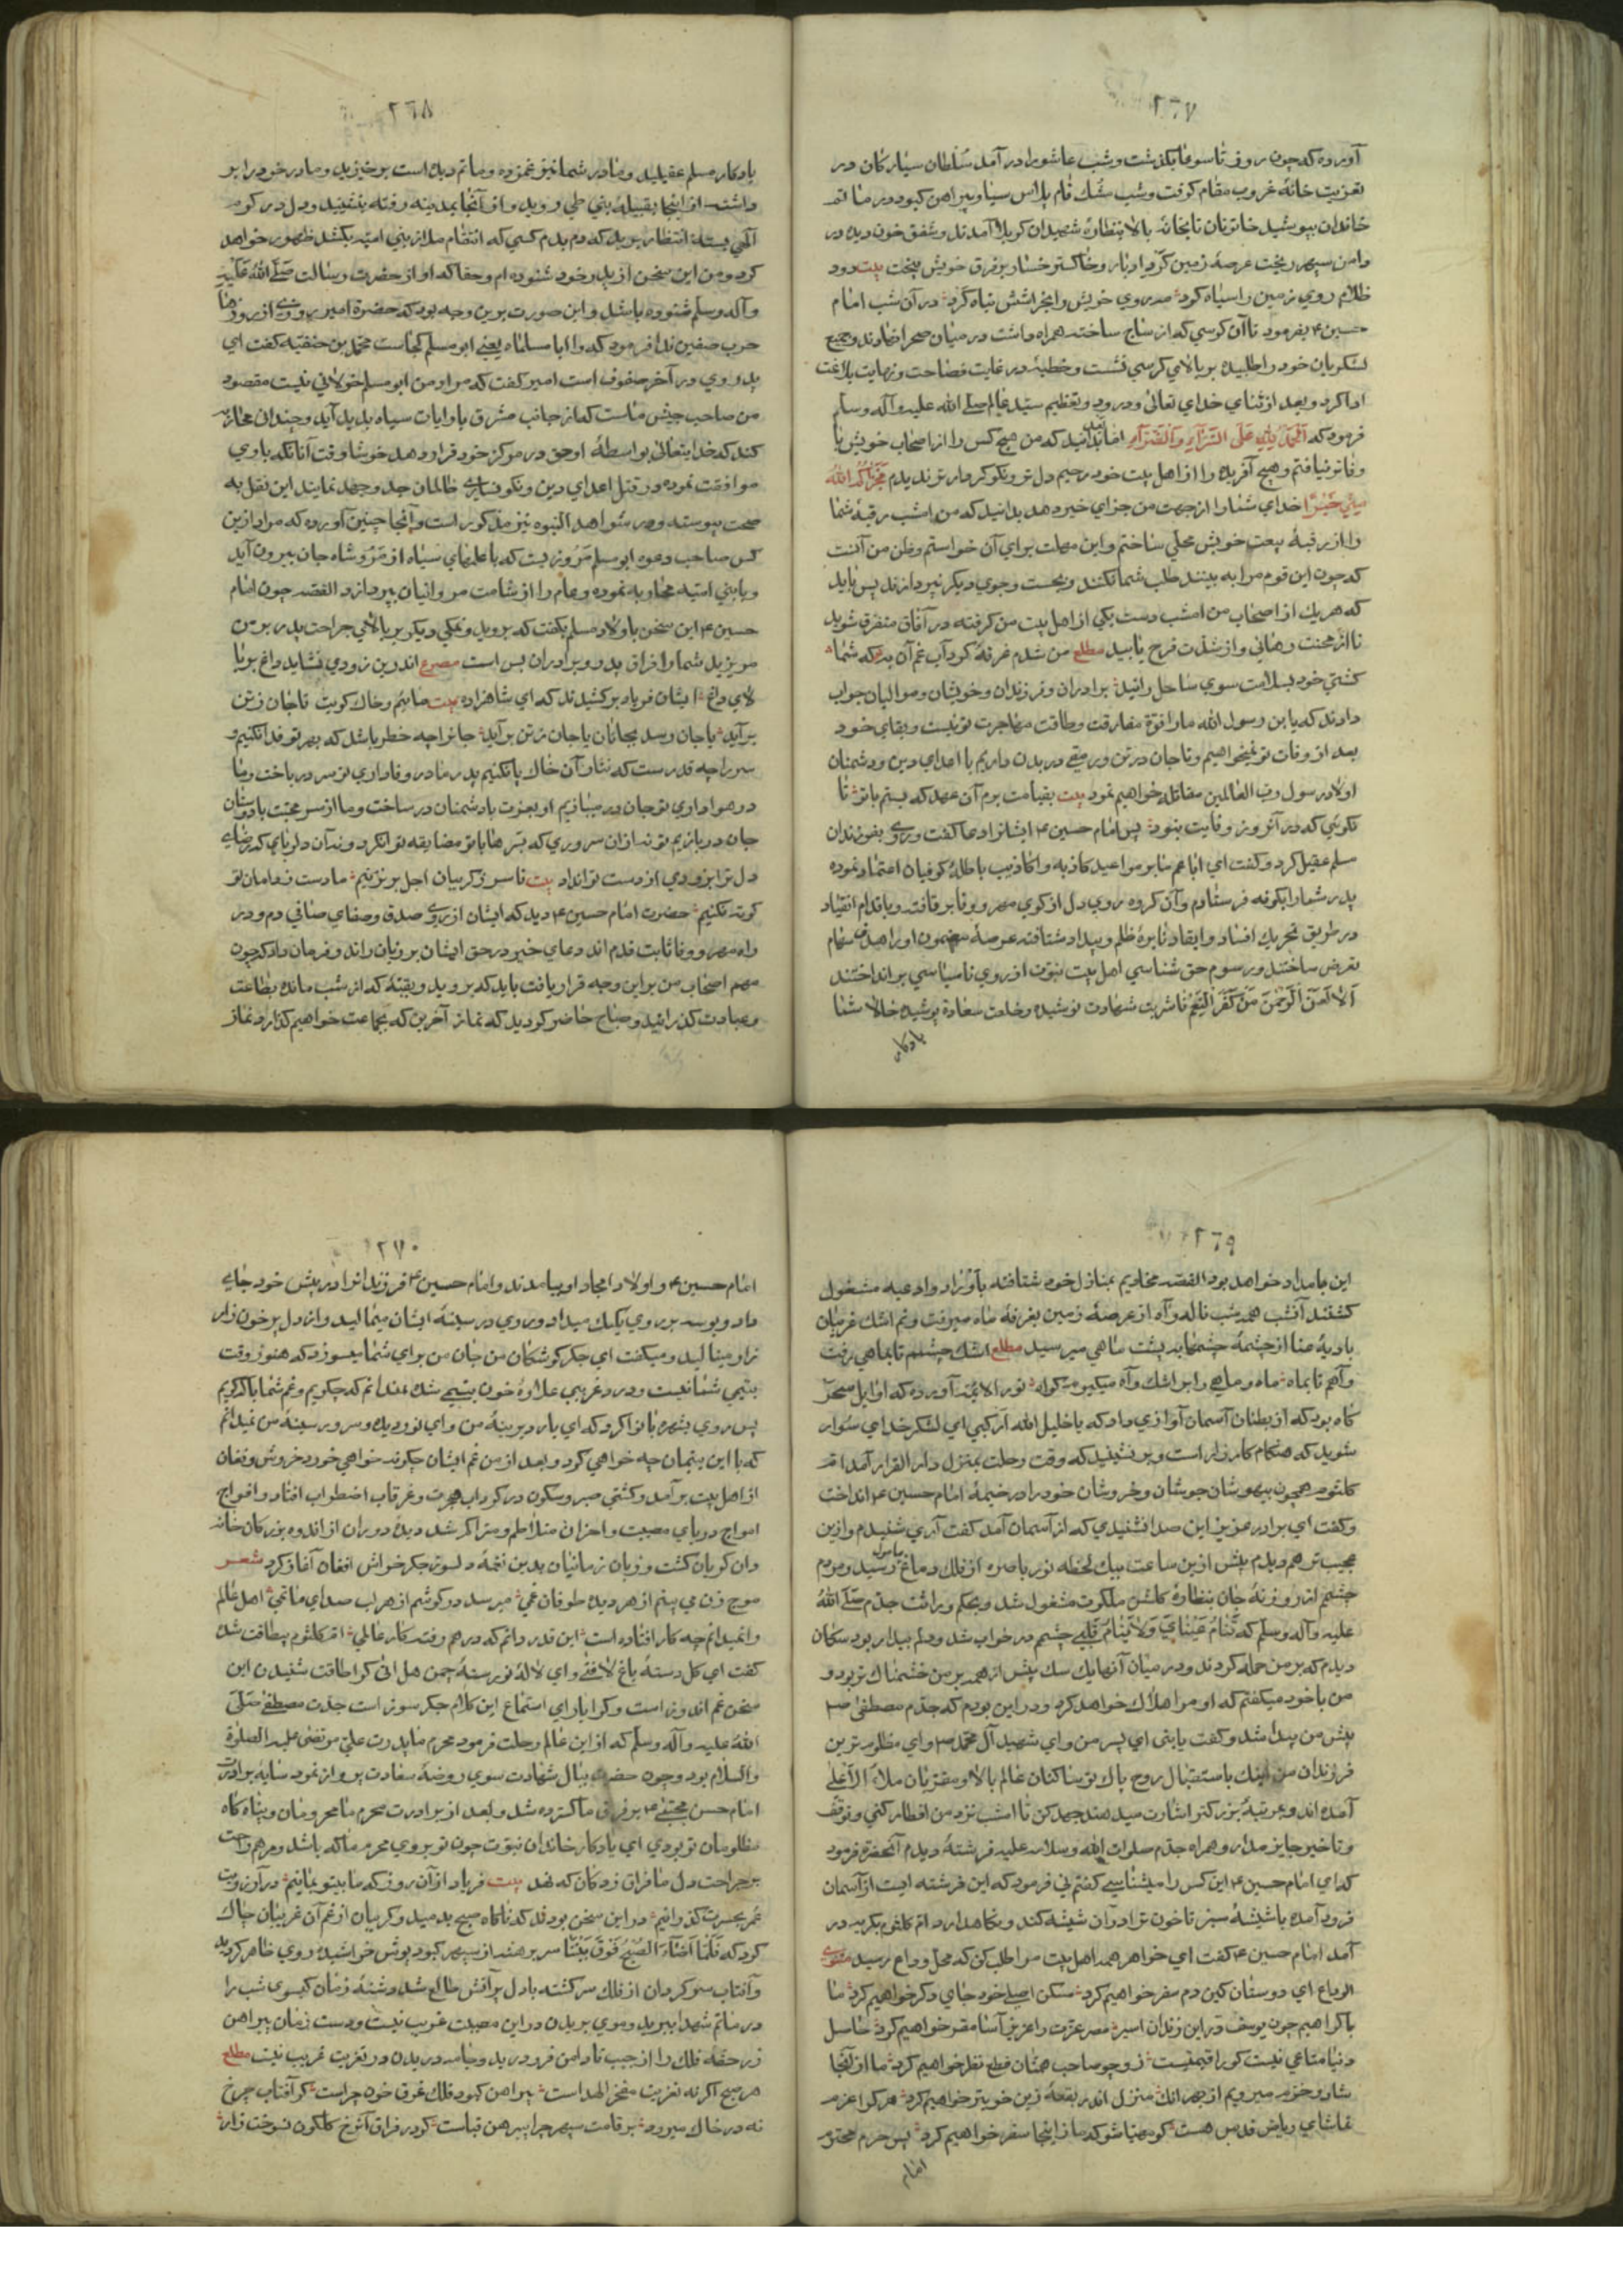 ٢٦٧
آورده که چون روز تاسوعا بگذشت و شب عاشورا در آمد سلطان سیارکان در
تعزیت خانهٔ غروب مقام کرفت و شب مشک فام پلاس سیاه و پیراهن کبود در ماتم
خاندان بپوشید خاتونان تابخانهٔ بالا بنظارهٔ شهیدان کربلا آمدند و شفق خون دیده در
دامن سپهر ریخت عرصهٔ زمین کرد ادبار و خاکستر خسار بر فرق خویش بیخت بیت دود
ظلام روی زمین را سیاه کرد مه روی خویش را بخراشش تباه کرد در آن شب امام
حسین ع بفرمود تا آن کرسی که از ساج ساخته همراه داشت در میان صحرا نهادند و جمیع
لشکریان خود را طلبیده بر بالای کرسی نشست و خطبهٔ در غایت فصاحت و نهایت بلاغت
ادا کرد و بعد از ثنای خدای تعالی و درود و تعظیم سید عالم صلی الله علیه و آله وسلم
فرمود که الحمد لله علی السراء والضراء اما بعد بدانید که من هیچ کس را از اصحاب خویش با
وفاتر نیافتم و هیچ آفریده را از اهل بیت خود رحیم دل تر و نکو کردارتر ندیدم فجزاکم الله
منی خیرا خدای شما را از جهت من جزای خیر دهد بدانید که من امشب رقبهٔ شما
را از ربقهٔ بیعت خویش محلی ساختم و این مهلت برای آن خواستم و ظن من آنست
که چون این قوم مرا به بینند طلب شما نکنند و بجست وجوی دیکر نپردازند پس باید
که هریک از اصحاب من امشب دست یکی از اهل بیت من کرفته در آفاق متفرق شوید
تا از محنت رهائی و از شدت فرح یابید مطلع من شدم غرقهٔ کرداب غم آن به که شما
کشتی خود بسلامت سوی ساحل رانید برادران و فرزندان و خویشان و موالیان جواب
دادند که یا بن رسول الله ما را قوة مفارقت و طاقت مهاجرت تو نیست و بقای خود
بعد از وفات تو نمیخواهیم و تا جان در تن و رمقی در بدن داریم با اعدای دین و دشمنان
اولاد رسول رب العالمین مقاتله خواهیم نمود بیت بقیامت برم آن عهد که بستم با تو تا
نکوئی که در آنروز وفایت نبود پس امام حسین ع ایشانرا دعا کفت و روی بفرزندان
مسلم عقیل کرد و کفت ای ابنا عم بنا بر مواعید کاذبه و اکاذیب باطلهٔ کوفیان اعتماد نموده
پدر شما را بکوفه فرستادم و آن کروه روی دل از کوی مهر و وفا بر تافتند و باقدام انقیاد
در طریق تحریک افساد و ایقاد نایرهٔ ظلم و بیداد شتافته عرصهٔ مضمون او را هدف سهام
تعرض ساختند و رسوم حق شناسی اهل بیت نبوت از روی ناسپاسی بر انداختند
الا لعن الرحمن من کفر النعم تا شربت شهادت نوشیده و خلعت سعادة پوشیده حالا شما
یادکار
٢٦٨
یادکار مسلم عقیلید و مادر شما نیز غمزده و ماتم دیده است برخیزید و مادر خود را بر
داشته از اینجا بقبیلهٔ بنی طی روید و از آنجا بمدینه رفته بنشینید و دل در کرم
الهی بسته انتظار برید که دم بدم کسی که انتقام ما از بنی امیه بکشد ظهور خواهد
کرد و من این سخن از پدر خود شنوده ام و حقا که او از حضرت رسالت صلی الله علیه
و آله وسلم شنوده باشد و این صورت برین وجه بود که حضرة امیر روزی از روزها
حرب صفین ندا فرمود که وا ابا مسلماه یعنی ابو مسلم کجاست محمد بن حنفیه کفت ای
پدر وی در آخر صفوف است امیر کفت که مراد من ابو مسلم خولانی نیست مقصود
من صاحب جیش ماست که از جانب مشرق با رایات سیاه پدید آید و چندان محاربه
کند که خدایتعالی بواسطهٔ او حق در مرکز خود قرار دهد خوشا وقت آنانکه با وی
موافقت نموده در قتل اعدای دین و نکونساری ظالمان جد و جهد نمایند این نقل به
صحت پیوسته و در شواهد النبوه نیز مذکور است و آنجا چنین آورده که مراد ازین
کس صاحب دعوه ابو مسلم مروزیست که با علمهای سیاه از مرو شاه جان بیرون آید
و با بنی امیه محاربه نموده و عالم را از شامت مروانیان بپردازد القصه چون امام
حسین ع این سخن با اولاد مسلم بکفت که بروید و نمکی دیکر بر بالای جراحت پدر بر من
مریزید شما را فراق پدر و برادران بس است مصرع اندرین زودی نشاید داغ بر با
لای داغ ایشان فریاد برکشیدند که ای شاهزاده بیت مائیم و خاک کویت تا جان ز تن
برآید یا جان رسد بجانان یا جان ز تن برآید جانرا چه خطر باشد که بهر تو فدا نکنیم و
سر را چه قدرست که نثار آن خاک پا نکنیم پدر ما در وفاداری تو سر در باخت و ما
در هواداری تو جان در میبازیم او بعزت با دشمنان در ساخت و ما از سر محبت با دوستان
جان در بازیم نوند ازان سروری که بتر هابا تو مضایقه توانکرد و نه آن دلربای که رضای
دل ترا بزودی از دست توانداد بیت تا سر ز کریبان اجل برنزنیم ما دست ز دامان تو
کوته نکنیم حضرت امام حسین ع دید که ایشان از روی صدق و صفای صافی دم و در
راه مهر و وفا ثابت قدم اند دعای خیر در حق ایشان بر زبان راند و فرمان داد که چون
مهم اصحاب من برین وجه قرار یافت باید که بروید و بقیهٔ که از شب مانده بطاعت
و عبادت کذرانید و صباح حاضر کردید که نماز آخرین که بجماعت خواهیم کذارد نماز
٢٦٩
این بامداد خواهد بود القصه مخادیم بمنازل خود شتافته باوراد و ادعیه مشغول
کشتند آنشب همه شب ناله و آه از عرصهٔ زمین بغرفهٔ ماه میرفت و نم اشک غریبان
بادیهٔ عنا از چشمهٔ چشمها به پشت ماهی میرسید مطلع اشک چشمم تا بماهی رفت
و آهم تا بماه ماه و ماهی را بر اشک و آه میکیرم کواه نور الائمه آورده که اوایل سحر
کاه بود که از بطنان آسمان آوازی داد که یا خلیل الله ارکبی ای لشکر خدای سوار
شوید که هنکام کارزار است و بر نشینید که وقت رحلت بمنزل دار القرار آمد ام
کلثوم همچون بیهوشان جوشان و خروشان خود را در خیمهٔ امام حسین ع انداخت
و کفت ای برادر عزیز این صدا شنیدی که از آسمان آمد کفت آری شنیدم و ازین
عجیب تر هم دیدم پیش ازین ساعت بیک لحظه نور باصره از فلک دماغ رسید و مردم
چشمم از روزنهٔ جان بنظارهٔ کلشن ملکوت مشغول شد و بحکم وراثت جدم صلی الله
علیه و آله وسلم که تنام عینای ولا ینام قلبی چشمم در خواب شد و دلم بیدار بود سکان
دیدم که بر من حمله کردند و در میان آنها یک سک پیش از همه بر من خشمناک تر بود و
من با خود میکفتم که او مرا هلاک خواهد کرد و در این بودم که جدم مصطفی ص
پیش من پیدا شد و کفت یا بنی ای پسر من و ای شهید آل محمد ص و ای مظلوم ترین
فرزندان من اینک باستقبال روح پاک تو ساکنان عالم بالا و مقربان ملاء الاعلی
آمده اند و بمرتبهٔ بزرکتر اشارت میدهند جهد کن تا امشب نزد من افطار کنی و توقف
و تاخیر جایز مدار و همراه جدم صلوات الله وسلامه علیه فرشتهٔ دیدم آنحضرة فرمود
که ای امام حسین ع این کس را میشناسی کفتم نی فرمود که این فرشته ایست از آسمان
فرود آمده با شیشهٔ سبز تا خون ترا در آن شیشه کند و نکاهدارد ام کلثوم بکریه در
آمد امام حسین ع کفت ای خواهر همه اهل بیت مرا طلب کن که محل وداع رسید مثنوی
الوداع ای دوستان کین دم سفر خواهیم کرد مسکن اصلی خود جای دکر خواهیم کرد ما
با کراهیم چون یوسف درین زندان اسیر مصر عزت را عزیز آسا مقر خواهیم کرد حاصل
دنیا متاعی نیست کو را قیمتیست زوجو صاحب همتان قطع نظر خواهیم کرد ما از اینجا
شاد و خرم میرویم از بهر انک منزل اندر بقعهٔ زین خوبتر خواهیم کرد هر کرا عزم
تماشای ریاض قدس هست کو مهیا شو که ما زاینجا سفر خواهیم کرد پس حرم محترم
امام
٢٧٠
امام حسین ع و اولاد امجاد او بیامدند و امام حسین ع فرزندانرا در پیش خود جای
داد و بوسه بر روی یکیک میداد و روی در سینهٔ ایشان میمالید و از دل پر خون زار
زار مینالید و میکفت ای جکر کوشکان من جان من برای شما میسوزد که هنوز وقت
یتیمی شما نیست و درد غریبی علاوهٔ خون یتیمی شد نمیدانم که چکویم و غم شما با که کویم
پس روی بشهر بانو کرد که ای یار دیرینهٔ من و ای نزدیک و سرور سینهٔ من نمیدانم
که با این یتیمان چه خواهی کرد و بعد از من غم ایشان چکونه خواهی خورد خروش و فغان
از اهل بیت برآمد و کشتی صبر و سکون در کرداب حیرت و غرقاب اضطراب افتاد و افواج
امواج دریای مصیبت و احزان متلاطم و متراکم شد دیدهٔ دوران از اندوه بزرکان خانه
دان کریان کشت و زبان زمانیان بدین نغمهٔ دلسوز جکر خراش افغان آغاز کرد شعر
موج زن می بینم از هر دیده طوفان غمی میرسد در کوشم از هر لب صدای ماتمی اهل عالم
را نمیدانم چه کار افتاده است این قدر دانم که درهم رفته کار عالمی ام کلثوم بیطاقت شد
کفت ای کل دستهٔ باغ لافتی و ای لالهٔ نورستهٔ چمن هل اتی کرا طاقت شنیدن این
سخن غم اندوز است و کرا یارای استماع این کلام جکر سوز است جدت مصطفی صلی
الله علیه و آله وسلم که ازین عالم رحلت فرمود محرم ما پدرت علی مرتضی علیه الصلوة
والسلام بود و چون حضرت ببال شهادت سوی روضهٔ سعادت پرواز نمود سایهٔ برادرت
امام حسن مجتبی ع بر فرق ما کسترده شد و بعد از برادرت محرم ما محرومان و پناه کاه
مظلومان تو بودی ای یادکار خاندان نبوت چون تو بروی محرم ما که باشد و مرهم راحت
بر جراحت دل ما فراق زدکان که نهد بیت فریاد از آن روز که ما بیتو بمانیم در آرزویت
عمر بحسرت کذرانیم در این سخن بودند که ناکاه صبح بدمید و کریبان از غم آن غریبان چاک
کرد که فلما اضاء الصبح فرق بیننا سر برهنه از سپهر کبود پوش خراشیده روی ظاهر کردید
و آفتاب سرکردان از فلک سرکشته با دل پر آتش طالع شد دشنهٔ زمان کیسوی شب را
در ماتم شهدا ببرید و موی بریدن در این مصیبت غریب نیست و دست زمان پیراهن
زر حقهٔ فلک را از جیب تا دامن فرو درید و جامه دریدن در تعزیت غریب نیست مطلع
هر صبح اکر نه تعزیت مفخر الهداست پیراهن کبود فلک غرق خون چراست کر آفتاب چرخ
نه در خاک میرود بر قامت سپهر چرا پیرهن قباست کو در فراق آنرخ کلکون نسوخت زار